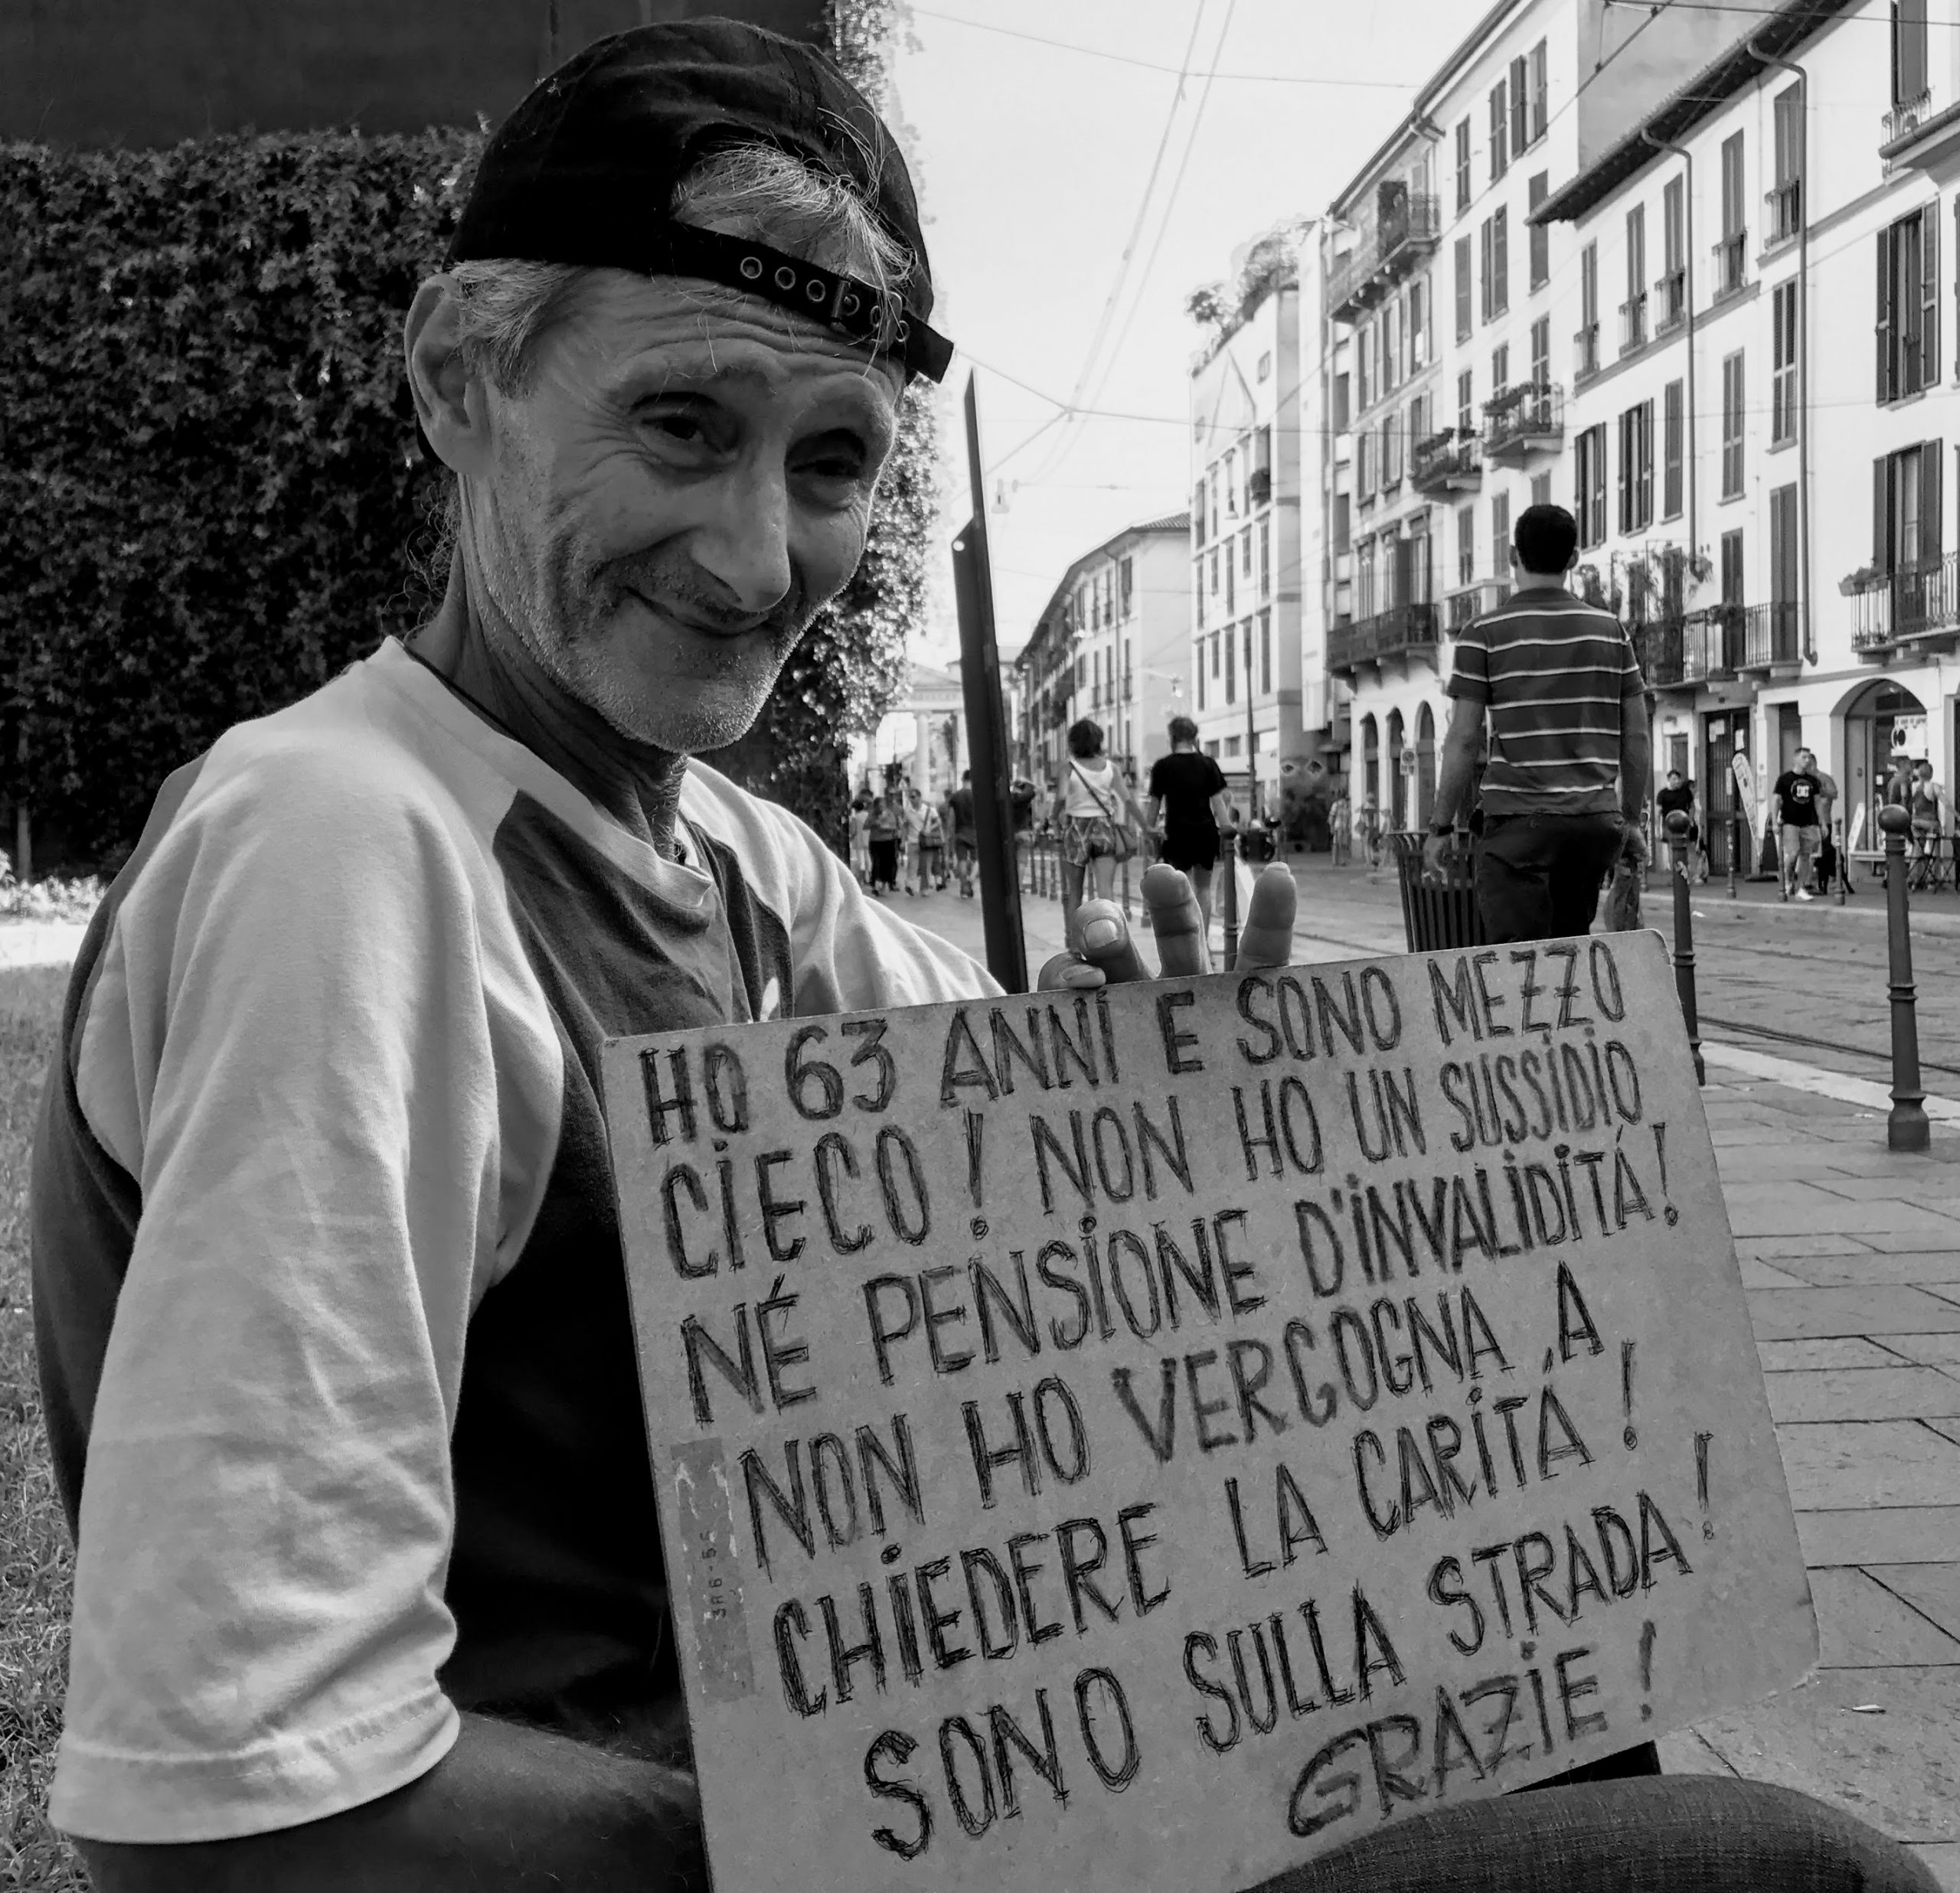 HO 63 ANNI E SONO MEZZO
CIECO! NON HO UN SUSSIDIO
NÉ PENSIONE D'INVALIDITÁ!
NON HO VERGOGNA A
CHIEDERE LA CARITÁ!
SONO SULLA STRADA!
GRAZIE!